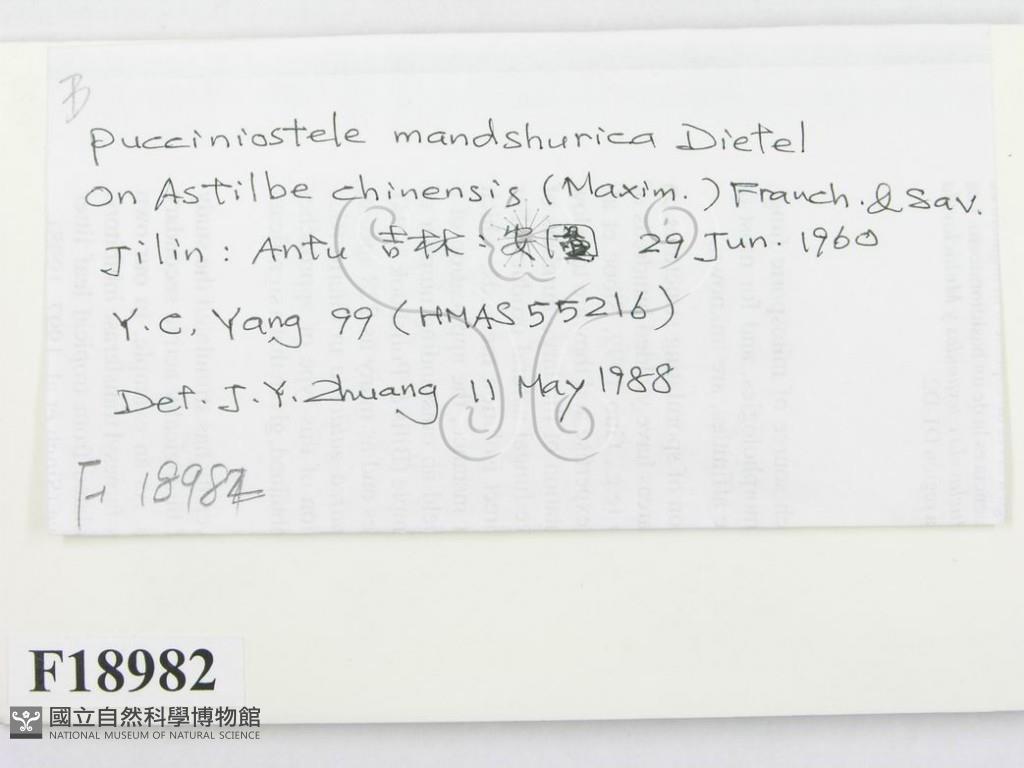 B
Pucciniostele mandshurica Dietel
On Astilbe chinensis (Maxim.) Franch. & Sav.
Jilin: Antu 吉林:安圖 29 Jun. 1960
Y.C. Yang 99 (HMAS 55216)
Det. J.Y. Zhuang 11 May 1988
F 18982
F18982
國立自然科學博物館
NATIONAL MUSEUM OF NATURAL SCIENCE